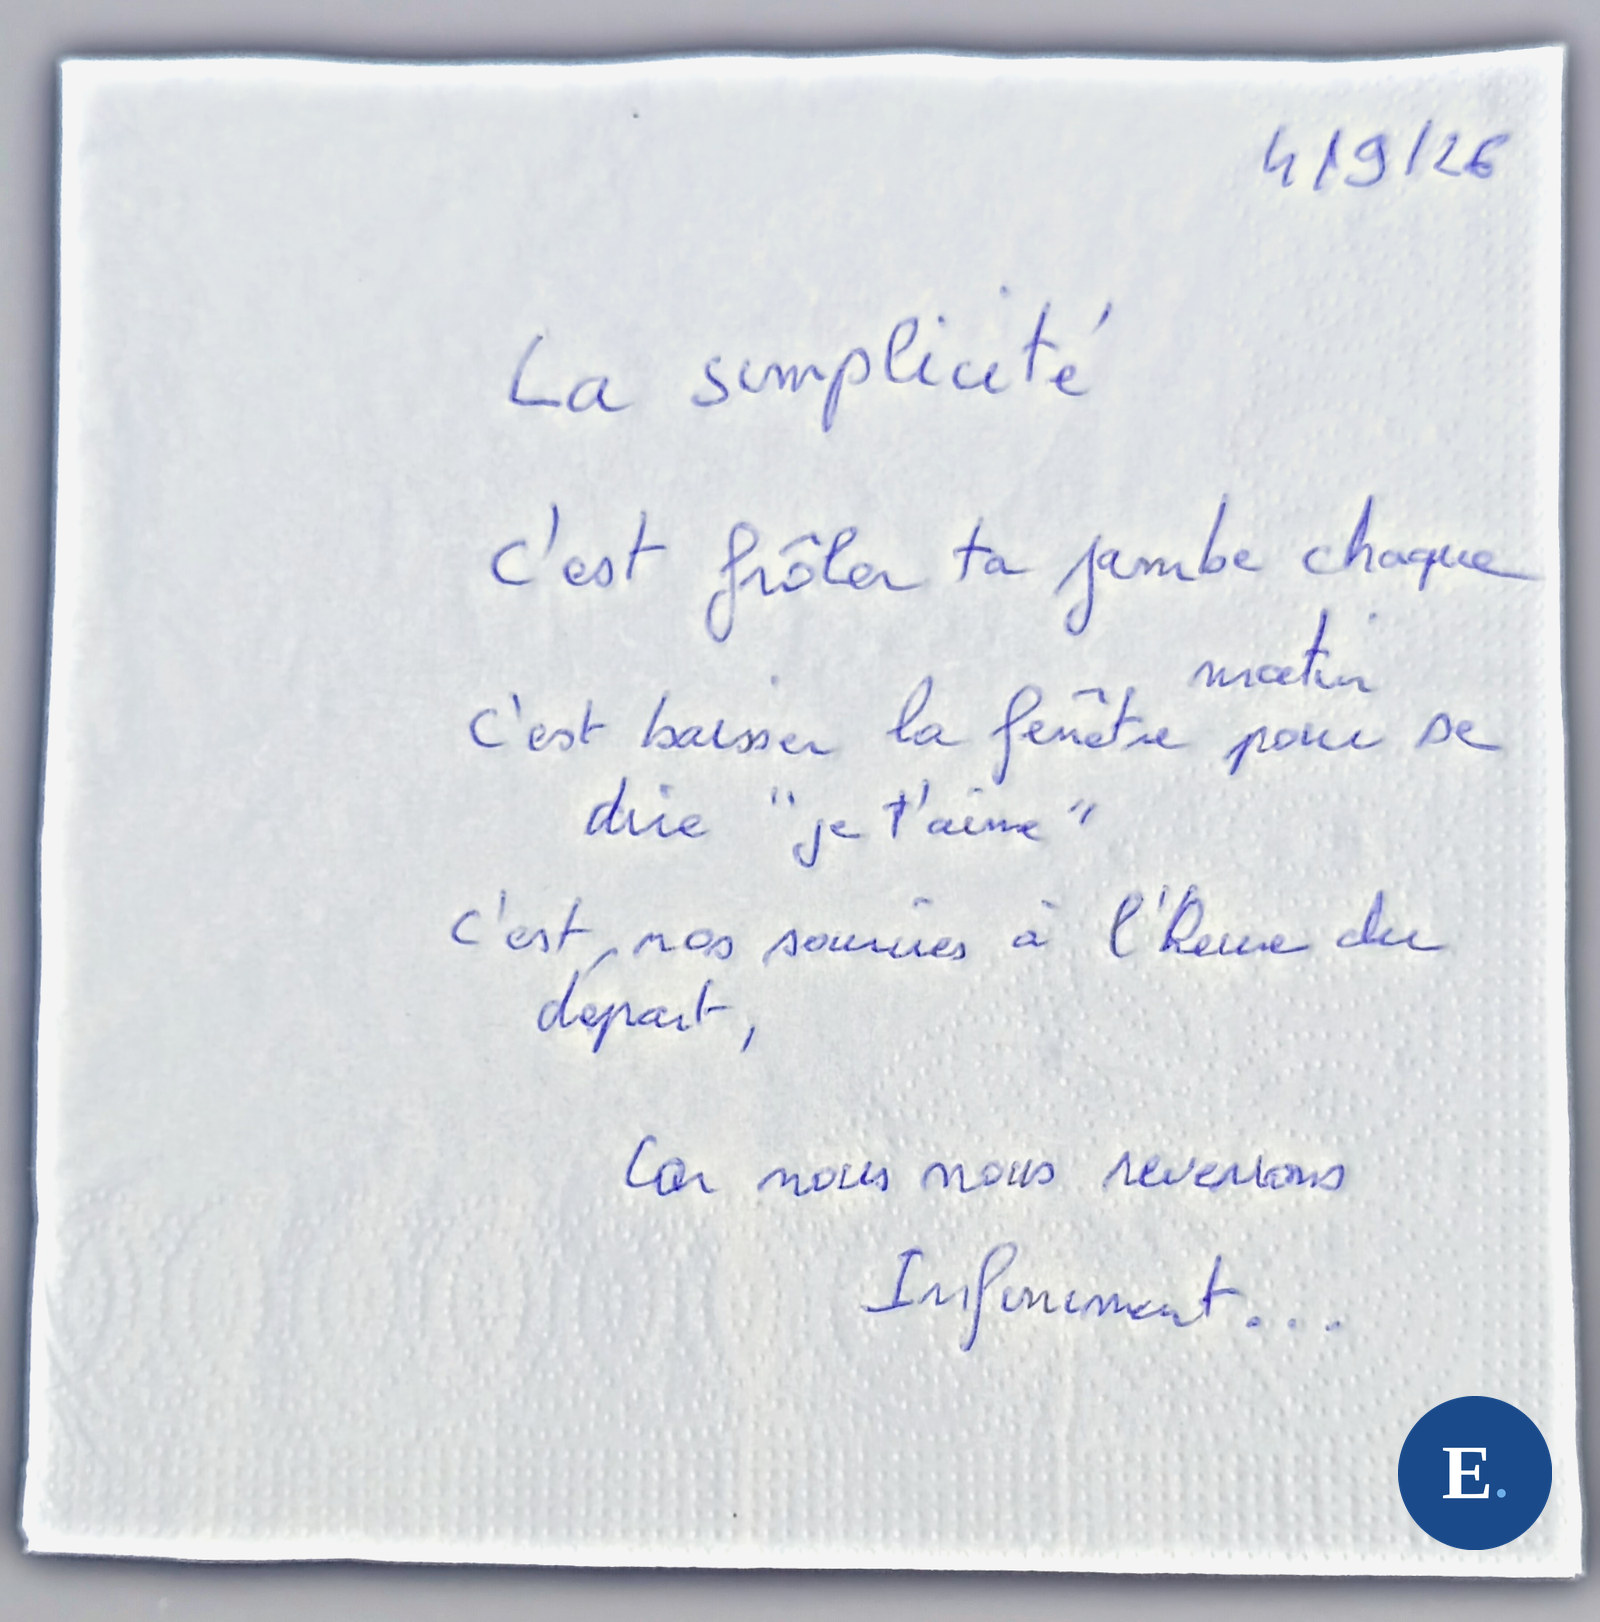 4/9/26
La simplicité
C'est frôler ta jambe chaque
matin
C'est baisser la fenêtre pour se
dire "je t'aime"
C'est nos sourires à l'heure du
départ,
Car nous nous reverrons
Infiniment...
E.